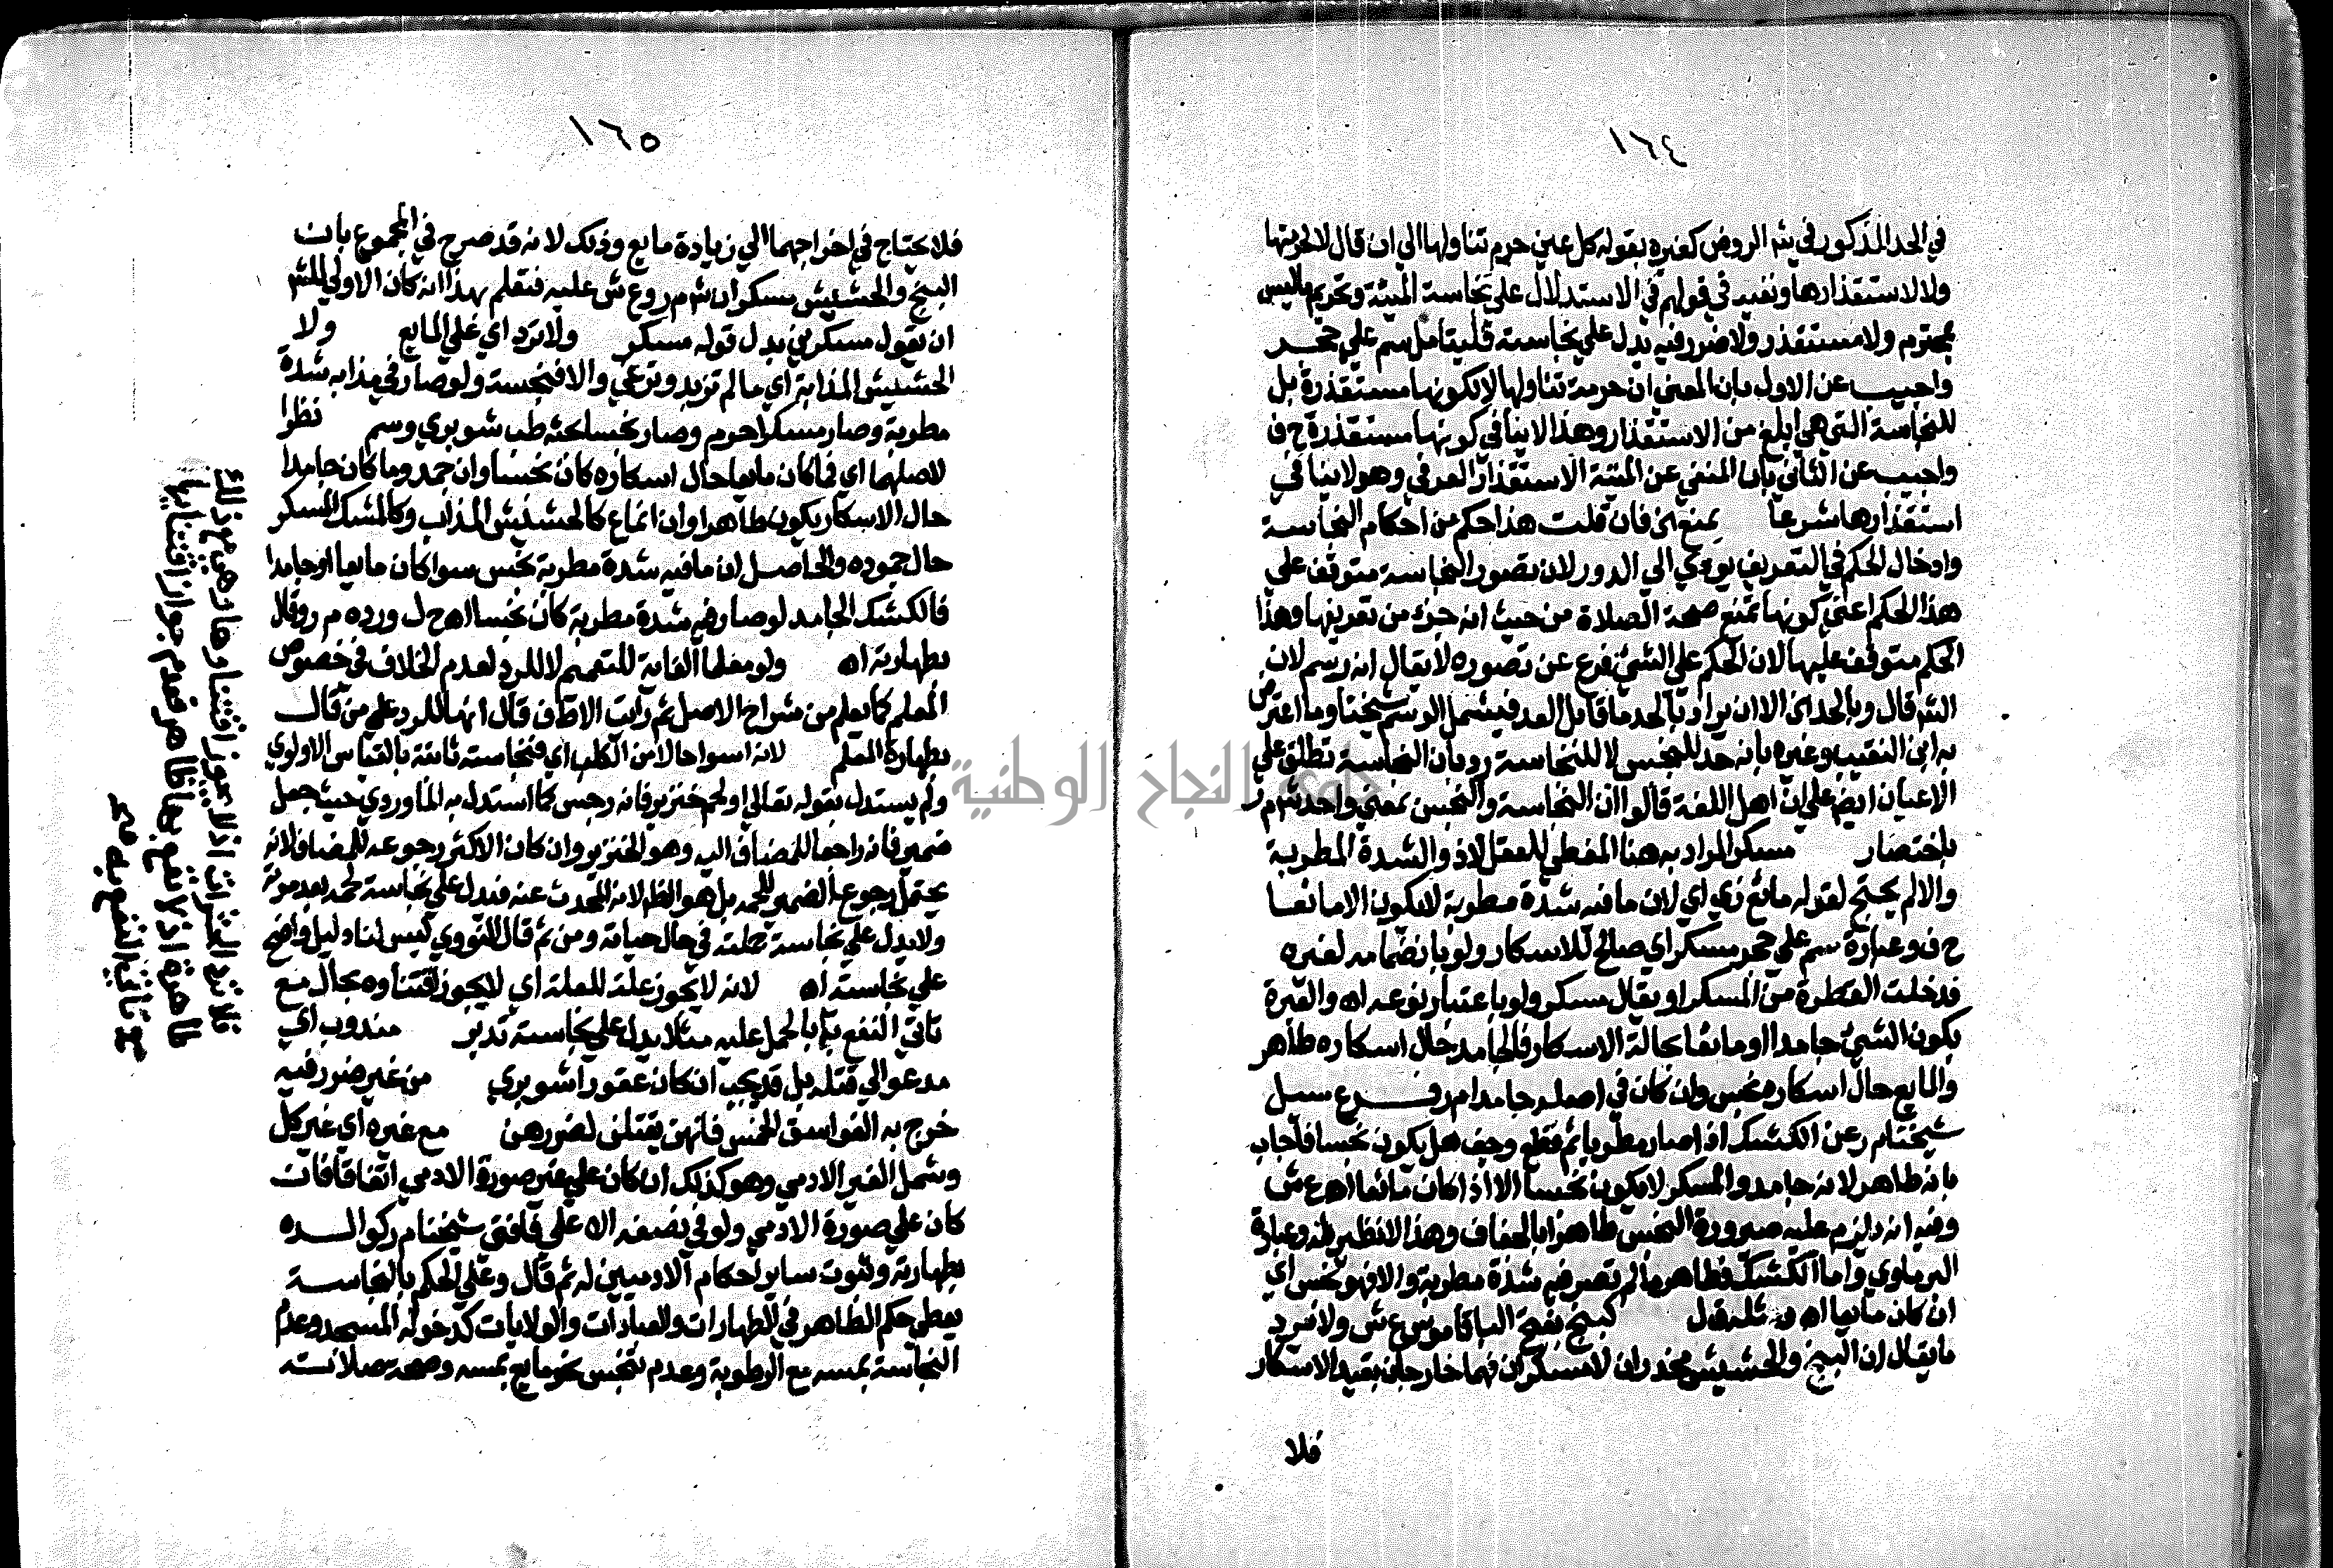 ١٦٤
في الحد المذكور في شر الروض كغيره بقوله كل عين حرم تناولها الى ان قال لا لحرمتها
ولا لاستقذارها ونفيه في قولهم في الاستدلال علي نجاسة الميتة وتحريم ماليس
بمحترم ولا مستقذر ولا ضرر فيه يدل علي نجاسته فليتامل سم علي حجر
واجيب عن الاول بان المعني ان حرمة تناولها لا لكونها مستقذرة بل
للنجاسة التي هي ابلغ من الاستقذار وهذا لا ينافي كونها مستقذرة ح ف
واجيب عن الثاني بان المنفي عن الميتة الاستقذار العرفي وهو لا ينافي
استقذارها شرعا يمنع الخ فان قلت هذا حكم من احكام النجاسة
وادخال الحكم في التعريف يودي الي الدور لان تصور النجاسة متوقف علي
هذا الحكم اعني كونها تمنع صحة الصلاة من حيث انه جزء من تعريفها وهذا
الحكم متوقف عليها لان الحكم علي الشي فرع عن تصوره لا يقال انه رسم لان
الشر قال وبالحد الخ الا ان يراد بالحد ما قابل العد فيشمل الرسم شيخنا وما اعترض
به ابن النقيب وغيره بانه حد للنجس لا للنجاسة رد بان النجاسة تطلق علي
الاعيان ايض علي ان اهل اللغة قالوا ان النجاسة والنجس بمعني واحد شر م ر
باختصار مسكر المراد به هنا المغطي للعقل لا ذو الشدة المطربة
والا لم يحتج لقوله مائع زي اي لان ما فيه شدة مطربة لا يكون الا مائعا
ح ف وعبارة سم علي حجر مسكر اي صالح للاسكار ولو بانضمامه لغيره
فدخلت القطرة من المسكر او يقال مسكر ولو باعتبار نوعه اه والعبرة
بكون الشي جامدا او مائعا بحالة الاسكار فالجامد حال اسكاره طاهر
والمايع حال اسكاره نجس وان كان في اصله جامدا م ر فرع سيل
شيخنا م ر عن الكشك اذا صار مطربا ثم قطع وجف هل يكون نجسا فاجاب
بانه طاهر لانه جامد والمسكر لا يكون نجسا الا اذا كان مائعا اه ع ش
وفيه انه يلزم عليه صيرورة النجس طاهرا بالجفاف وهذا لا نظير له وعبارة
البرماوي واما الكشك فطاهر ما لم تصر فيه شدة مطربة والا فهو نجس اي
ان كان مايعا اه ومثله ق ل كبنج بفتح البا قاموس ع ش ولا يرد
ما يقال ان البنج والحشيش مخدران لا مسكران فهما خارجان بقيد الاسكار
فلا
١٦٥
فلا يحتاج في اخراجهما الي زيادة مايع وذلك لانه قد صرح في المجموع بان
البنج والحشيش مسكران شر م ر وع ش عليه فتعلم بهذا انه كان الاولي للشر
ان يقول مسكرين بدل قوله مسكر ولا ترد اي علي المايع ولا
الحشيش المذابة اي ما لم تزبد وترغي والا فنجسة ولو صار في مذابه شدة
مطربة وصار مسكرا حرم وصار نجسا بحثه طب شوبري وسم نظرا
لاصلهما اي فما كان مايعا حال اسكاره كان نجسا وان جمد وما كان جامدا
حال الاسكار يكون طاهرا وان انماع كالحشيش المذاب وكالكشك المسكر
حال جموده والحاصل ان ما فيه شدة مطربة نجس سوا كان مايعا او جامدا
فالكشك الجامد لو صار فيه شدة مطربة كان نجسا اه ح ل ورده م ر وقال
بطهارته اه ولو معلما الغاية للتعميم لا للرد لعدم الخلاف في خصوص
المعلم كما يعلم من شراح الاصل ثم رايت الاطف قال انها للرد علي من قال
بطهارة المعلم لانه اسوا حالا من الكلب اي فنجاسته ثابتة بالقياس الاولوي
ولم يستدل بقوله تعالي او لحم خنزير فانه رجس كما استدل به الماوردي حيث جعل
ضمير فانه راجعا للمضاف اليه وهو الخنزير وان كان الاكثر رجوعه للمضاف لانه
يحتمل رجوع الضمير للحم بل هو الظ لانه المحدث عنه فيدل علي نجاسة لحمه بعد موته
ولا يدل علي نجاسة جملته في حال حياته ومن ثم قال النووي ليس لنا دليل واضح
علي نجاسته اه لانه لا يجوز علة للعلة اي لا يجوز اقتناوه بحال مع
تاتي النفع به بالحمل عليه مثلا يدل علي نجاسته تدبر مندوب اي
مدعو الي قتله بل قد يجب ان كان عقورا شوبري من غير ضرر فيه
خرج به الفواسق الخمس فانهن يقتلن لضررهن مع غيره اي غير كل
وشمل الغير الادمي وهو كذلك ان كان علي غير صورة الادمي اتفاقا فان
كان علي صورة الادمي ولو في نصفه الاعلي فافتي شيخنا م ر كوالده
بطهارته وثبوت ساير احكام الادميين له ثم قال وعلي الحكم بالنجاسة
يعطي حكم الطاهر في الطهارات والعبادات والولايات كدخوله المسجد وعدم
النجاسة بمسه مع الرطوبة وعدم تنجس نحو مايع بمسه وصحة صلاته
فلا ترد الحشرات اذ لا يجوز اقتناوها
طاهرة اذ لا نفع بها ظاهر فعدم جواز اقتنايها
تاتي النفع به